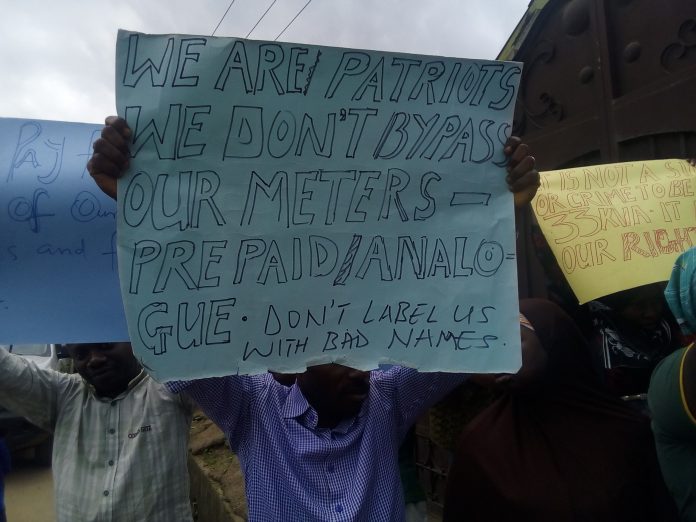 WE ARE PATRIOTS
WE DON'T BYPASS
OUR METERS -
PREPAID/ANALO-
GUE. DON'T LABEL US
WITH BAD NAMES.
Pay f
of Our
s and f
IS NOT A S
OR CRIME TO BE
33KVA. IT
OUR RIGH